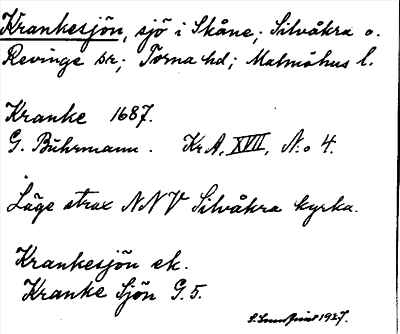 Krankesjön, sjö i Skåne; Silvåkra o.
Revinge sr; Torna hd; Malmöhus l.
Kranke 1687.
G. Buhrmann. KrA, XVII, N:o 4.
Läge strax NNV Silvåkra kyrka.
Krankesjön ek.
Kranke Sjön G. 5.
1927.